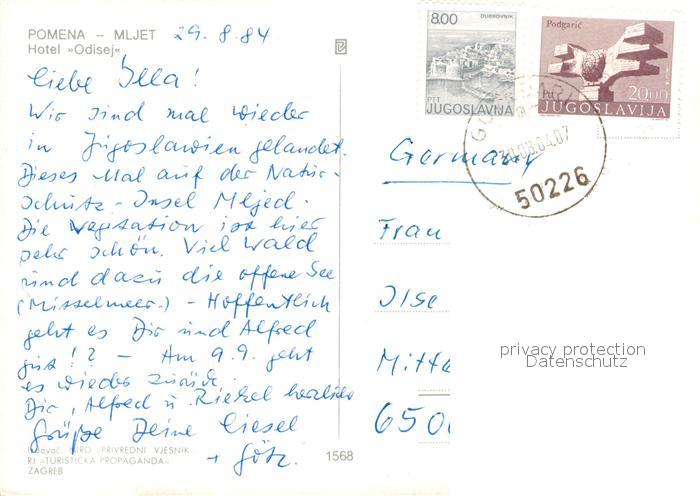 POMENA – MLJET 29.8.84
Hotel »Odisej«
Liebe Illa!
Wir sind mal wieder
in Jugoslawien gelandet.
Dieses Mal auf der Natur-
schutz-Insel Mljed.
Die Vegetation ist hier
sehr schön. Viel Wald
und dazu die offene See
(Mittelmeer.) – Hoffentlich
geht es Dir und Alfred
gut!? – Am 9.9. geht
es wieder zurück.
Dir, Alfred u. herzliche
Grüße Deine Liesel
+ Götz.
BIRO »PRIVREDNI VJESNIK
RJ »TURISTIČKA PROPAGANDA«
ZAGREB
1568
8.00
DUBROVNIK
PTT
JUGOSLAVIJA
Podgarić
Ptt
20.00
JUGOSLAVIJA
50226
Germany
Frau
Ilse
Mitte
650
privacy protection
Datenschutz